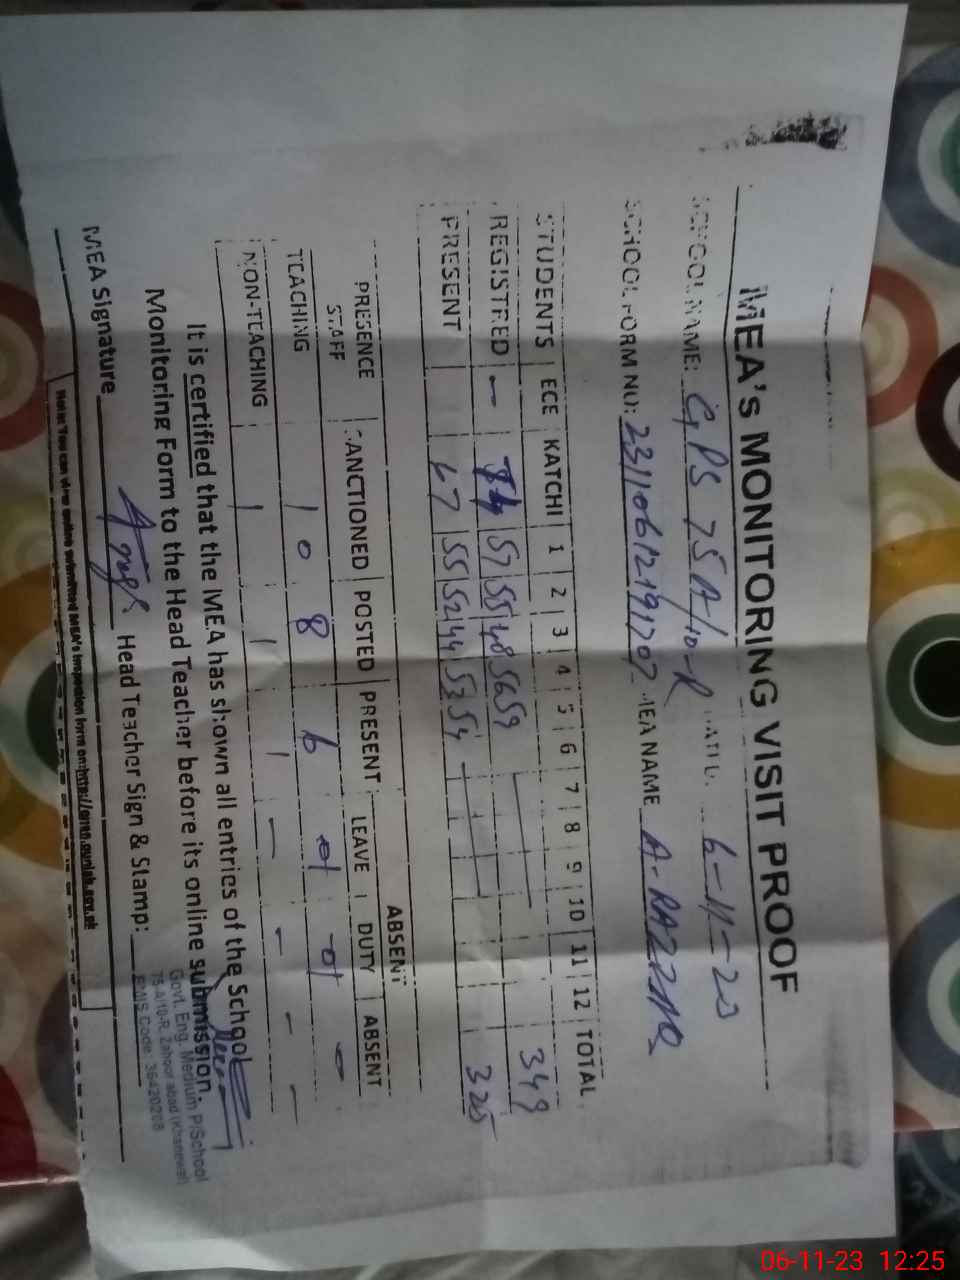 MEA's MONITORING VISIT PROOF
SCHOOL NAME: GPS 75 A/10-R DATE: 6-11-23
SCHOOL FORM NO: 2311061219170? MEA NAME A-RAZZAQ
STUDENTS ECE KATCHI 1 2 3 4 5 6 7 8 9 10 11 12 TOTAL
REGISTRED - 74 57 55 48 56 59 349
PRESENT 67 55 52 44 53 54 325
PRESENCE STAFF SANCTIONED POSTED PRESENT ABSENT
LEAVE DUTY ABSENT
TEACHING 10 8 6 01 01 0
NON-TEACHING 1 1 1 - - - -
It is certified that the MEA has shown all entries of the School
Monitoring Form to the Head Teacher before its online submission.
MEA Signature Head Teacher Sign & Stamp:
Govt. Eng. Medium P/School
75-A/10-R, Zahoor abad (Khanewal)
EMIS Code: 36420208
Note: You can view online submitted MEA's inspection form on: http://
06-11-23 12:25